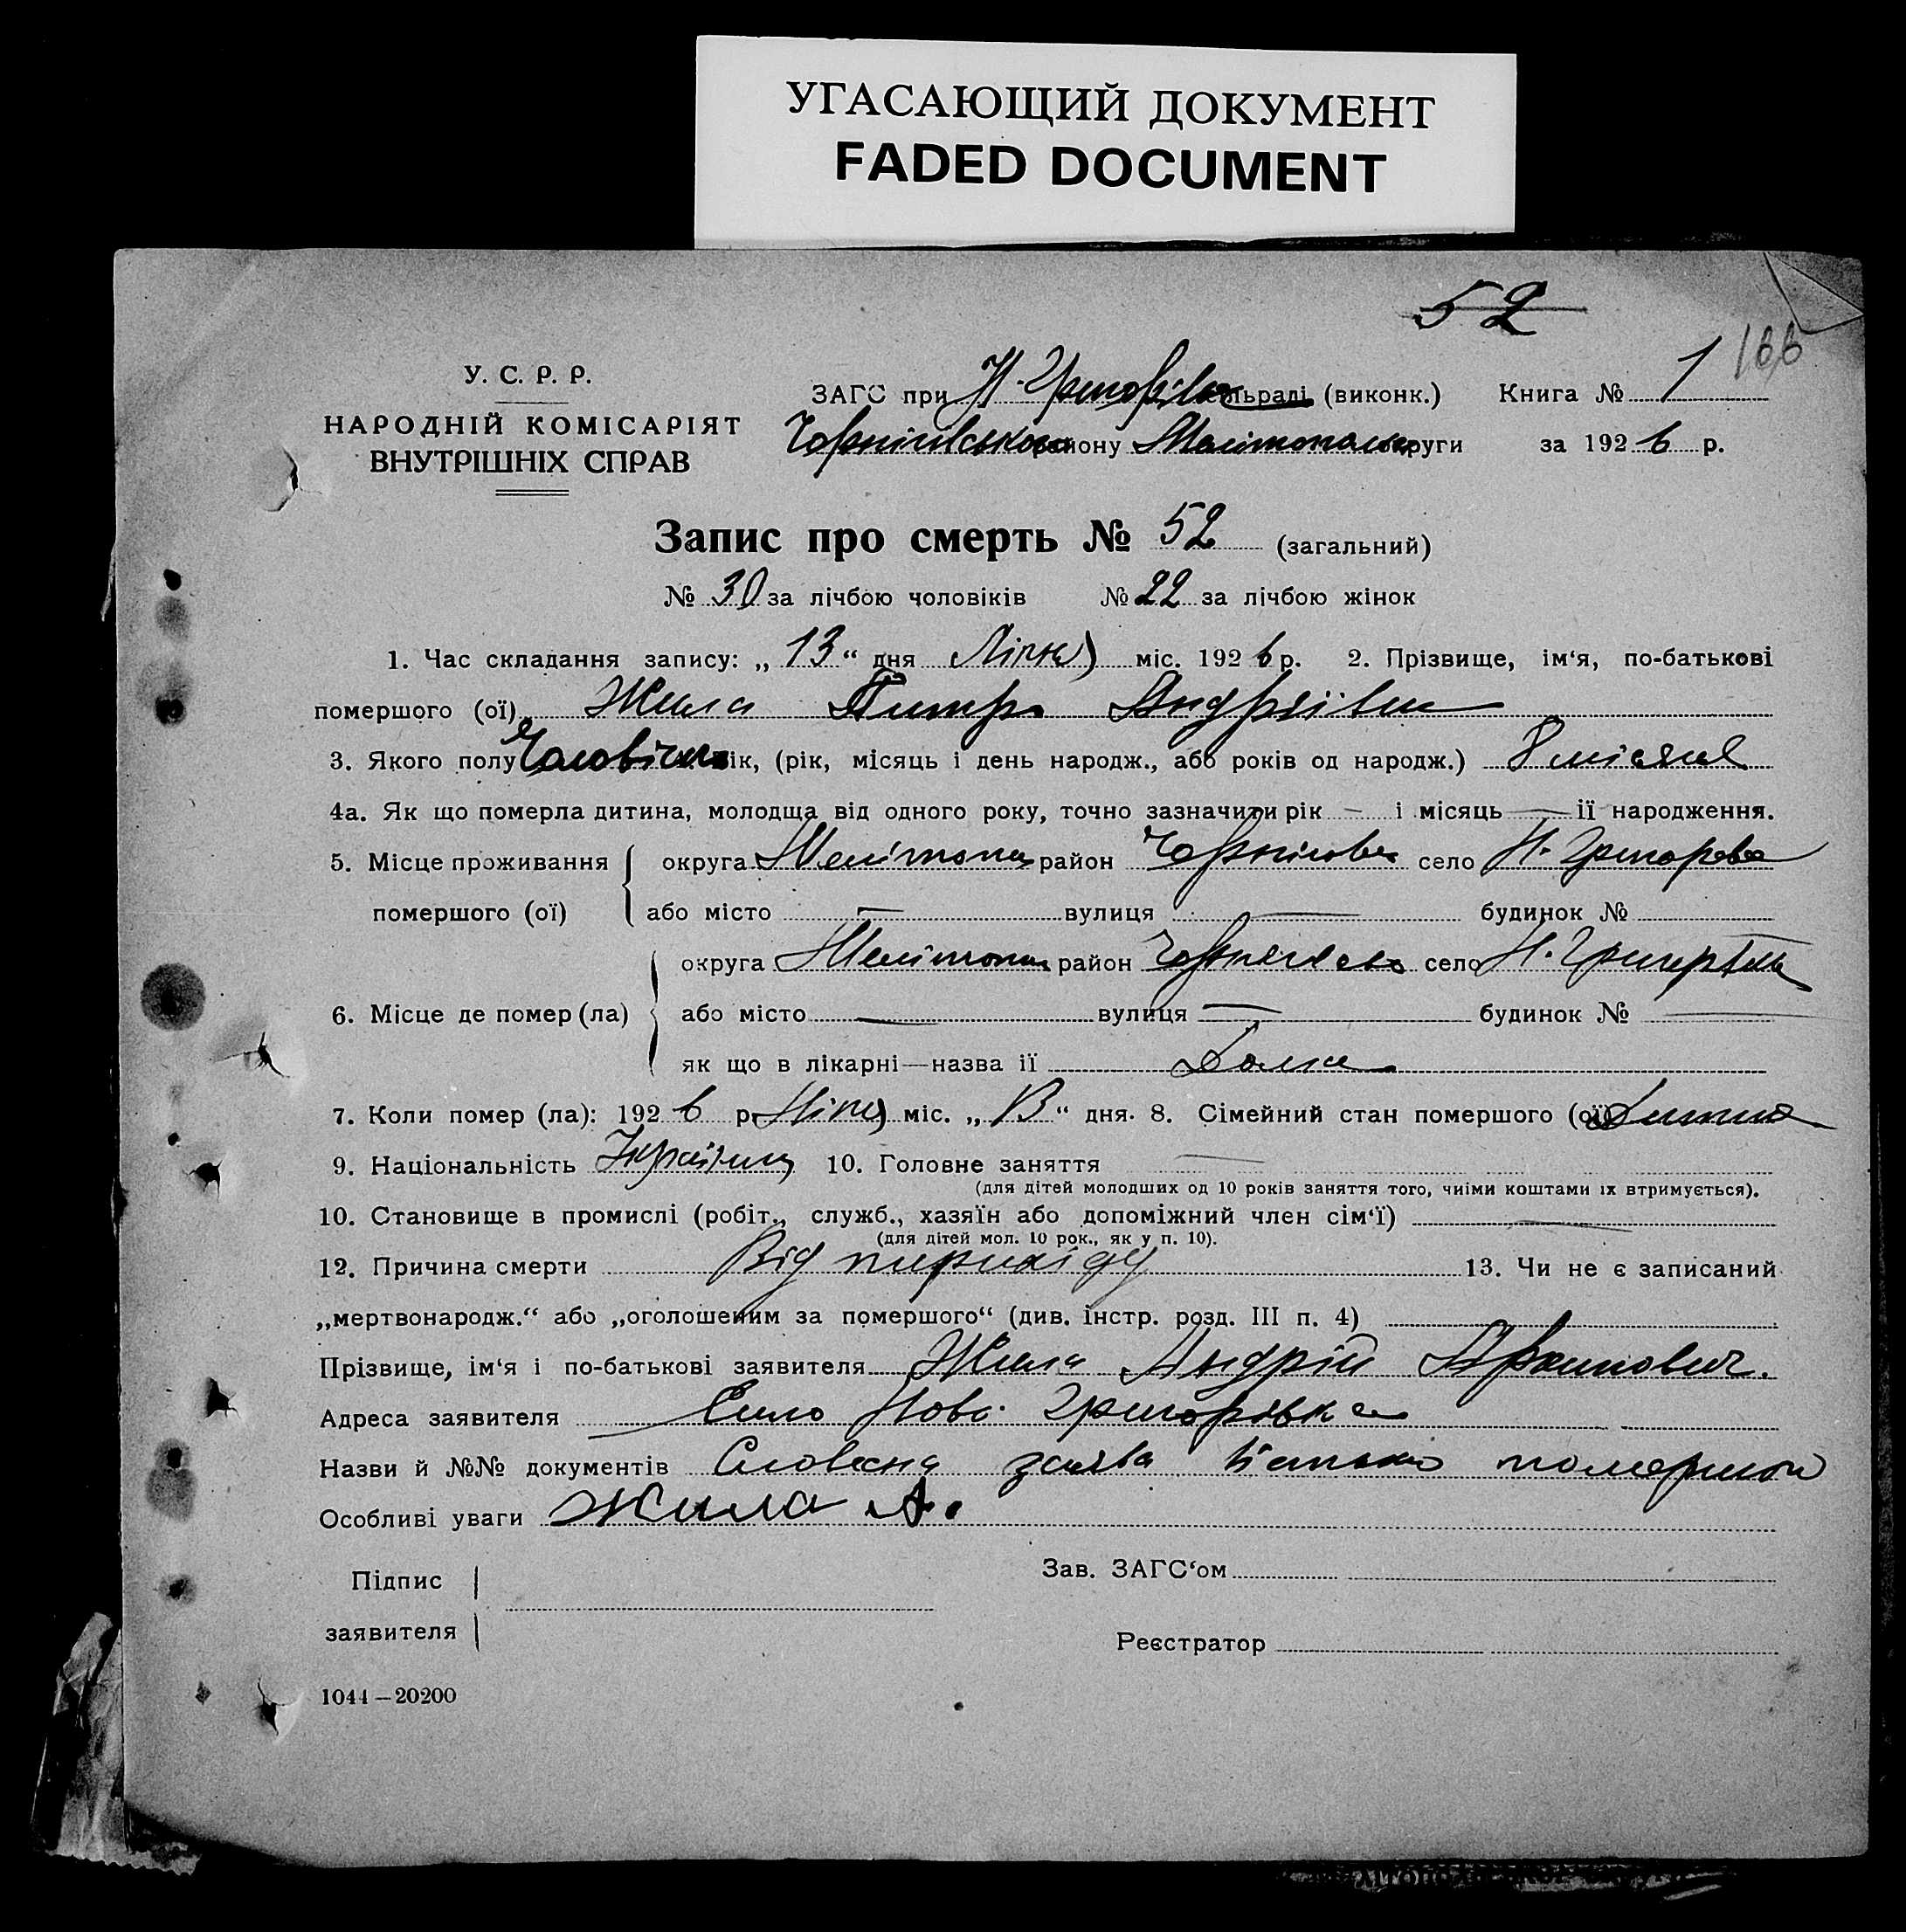 УГАСАЮЩИЙ ДОКУМЕНТ
FADED DOCUMENT
52
166
У. С. Р. Р.
НАРОДНІЙ КОМІСАРІЯТ
ВНУТРІШНІХ СПРАВ
ЗАГС при Н. Григорівск сільраді (виконк.) Книга № 1
Чорнігівського району Мелітополь округи за 1926 р.
Запис про смерть № 52 (загальний)
№ 30 за лічбою чоловіків № 22 за лічбою жінок
1. Час складання запису: „ 13 “ дня Ліпня міс. 1926 р. 2. Прізвище, ім‘я, по-батькові
помершого (ої) Жила Питро Андріївич
3. Якого полу Чоловіча вік, (рік, місяць і день народж., або років од народж.) 8 місяців
4а. Як що померла дитина, молодща від одного року, точно зазначити рік — і місяць — її народження.
5. Місце проживання округа Мелітополь район Чорнігов село Н. Григорова
помершого (ої) або місто — вулиця — будинок №
округа Мелітополь район село Н. Григорівка
6. Місце де помер (ла) або місто — вулиця — будинок № —
як що в лікарні—назва її Дома
7. Коли помер (ла): 1926 р. Ліпня міс. „ 13 “ дня. 8. Сімейний стан помершого (ої) Дитина
9. Національність Українец 10. Головне заняття —
(для дітей молодших од 10 років заняття того, чиїми коштами їх втримується).
10. Становище в промислі (робіт., служб., хазяїн або допоміжний член сім‘ї) —
(для дітей мол. 10 рок., як у п. 10).
12. Причина смерти Від 13. Чи не є записаний
„мертвонародж.“ або „оголошеним за помершого“ (див. інстр. розд. III п. 4)
Прізвище, ім‘я і по-батькові заявителя Жила Андрій Архипович.
Адреса заявителя Село Ново Григорівка
Назви й №№ документів Словесна заява батька помершого
Особливі уваги Жила А.
Підпис
заявителя
Зав. ЗАГС‘ом
Реєстратор
1044—20200